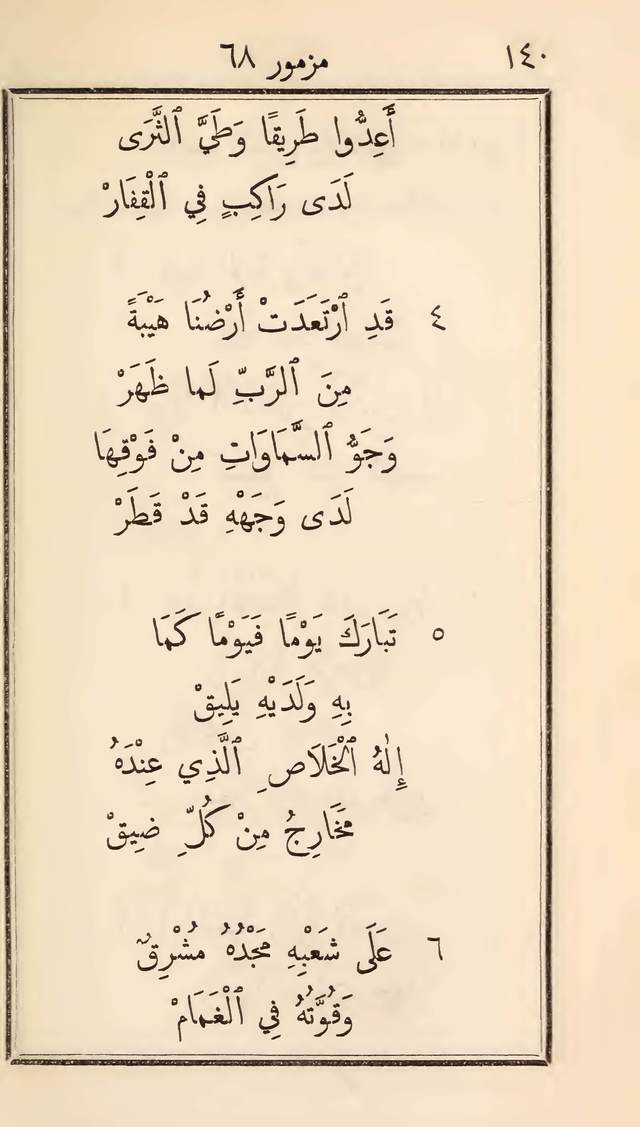 ١٤٠ مزمور ٦٨
أَعِدُّوا طَرِيقًا وَطَيَّ ٱلثَّرَى
لَدَى رَاكِبٍ فِي ٱلْقِفَارْ
٤ قَدِ ٱرْتَعَدَتْ أَرْضُنَا هَيْبَةً
مِنَ ٱلرَّبِّ لَما ظَهَرْ
وَجَوُّ ٱلسَّمَاوَاتِ مِنْ فَوْقِهَا
لَدَى وَجَهْهِ قَدْ قَطَرْ
٥ تَبَارَكَ يَوْمًا فَيَوْمًا كَمَا
بِهِ وَلَدَيْهِ يَلِيقْ
إِلٰهُ ٱلْخَلَاصِ ٱلَّذِي عِنْدَهُ
مَخَارِجُ مِنْ كُلِّ ضِيقْ
٦ عَلَى شَعْبِهِ مَجْدُهُ مُشْرِقٌ
وَقُوَّتُهُ فِي ٱلْغَمَامْ